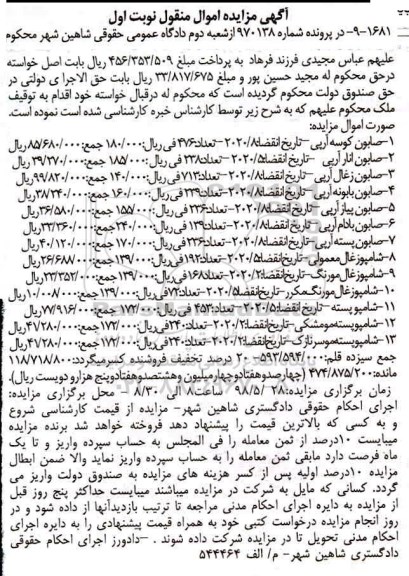 آگهی مزایده اموال منقول نوبت اول
۹-۱۶۸۱- در پرونده شماره ۹۷۰۱۳۸ ازشعبه دوم دادگاه عمومی حقوقی شاهین شهر محکوم
علیهم عباس مجیدی فرزند فرهاد به پرداخت مبلغ ۴۵۶/۳۵۳/۵۰۹ ریال بابت اصل خواسته
درحق محکوم له مجید حسین پور و مبلغ ۳۳/۸۱۷/۶۷۵ ریال بابت حق الاجرا ی دولتی در
حق صندوق دولت محکوم گردیده است که محکوم له درقبال خواسته خود اقدام به توقیف
ملک محکوم علیهم که به شرح زیر توسط کارشناس خبره کارشناسی شده است نموده است.
صورت اموال مزایده:
۱-صابون کوسه آرپی -تاریخ انقضا:۲۰۲۰/۸-تعداد:۴۷۶ فی ریال:۱۸۰/۰۰۰ جمع:۸۵/۶۸۰/۰۰۰ریال
۲-صابون انار آرپی -تاریخ انقضا:۲۰۲۰/۵-تعداد:۲۳۸ فی ریال:۱۸۵/۰۰۰ جمع:۳۹/۲۷۰/۰۰۰ریال
۳-صابون زغال آرپی -تاریخ انقضا:۲۰۲۰/۸-تعداد:۷۱۳ فی ریال:۱۴۰/۰۰۰ جمع:۹۹/۸۲۰/۰۰۰ریال
۴-صابون بابونه آرپی -تاریخ انقضا:۲۰۲۰/۸-تعداد:۲۳۹ فی ریال:۱۶۰/۰۰۰ جمع:۳۸/۲۴۰/۰۰۰ریال
۵-صابون پیاز آرپی -تاریخ انقضا:۲۰۲۰/۵-تعداد:۲۳۶ فی ریال:۱۵۵/۰۰۰ جمع:۳۶/۵۸۰/۰۰۰ریال
۶-صابون بادام آرپی -تاریخ انقضا:۲۰۲۰/۸-تعداد:۱۳۹ فی ریال:۲۴۰/۰۰۰ جمع:۳۳/۳۶۰/۰۰۰ریال
۷-صابون پسته آرپی -تاریخ انقضا:۲۰۲۰/۸-تعداد:۲۳۶ فی ریال:۱۷۰/۰۰۰ جمع:۴۰/۱۲۰/۰۰۰ریال
۸-شامپوزغال معمولی-تاریخ انقضا:۲۰۲۰/۵-تعداد:۱۹۲ فی ریال:۱۳۹/۰۰۰ جمع:۲۶/۶۸۸/۰۰۰ریال
۹-شامپوزغال مورنگ-تاریخ انقضا:۲۰۲۰/۲-تعداد:۱۶۸ فی ریال:۱۳۹/۰۰۰ جمع:۲۳/۳۵۲/۰۰۰ریال
۱۰-شامپوزغال مورنگ مکرر-تاریخ انقضا:۲۰۲۰/۵-تعداد:۷۲ فی ریال:۱۳۹/۰۰۰ جمع:۱۰/۰۰۸/۰۰۰ریال
۱۱-شامپو پسته -تاریخ انقضا:۲۰۲۰/۵-تعداد:۴۵۳ فی ریال:۱۷۲/۰۰۰ جمع:۷۷/۹۱۶/۰۰۰ریال
۱۲-شامپو پسته مومشکی-تاریخ انقضا:۲۰۲۰/۲-تعداد:۲۴۰ فی ریال:۱۷۲/۰۰۰ جمع:۴۱/۲۸۰/۰۰۰ریال
۱۳-شامپو پسته موسرنازک-تاریخ انقضا:۲۰۲۰/۲-تعداد:۲۴۰ فی ریال:۱۷۲/۰۰۰ جمع:۴۱/۲۸۰/۰۰۰ریال
جمع سیزده قلم:۵۹۳/۵۹۴/۰۰۰- ۲۰ درصد تخفیف فروشنده کسرمیگردد:۱۱۸/۷۱۸/۸۰۰
مانده:۴۷۴/۸۷۵/۲۰۰ (چهارصدوهفتادوچهارمیلیون وهشتصدوهفتادوپنج هزارو دویست ریال).
زمان برگزاری مزایده: ۹۸/۵/۲۸ ساعت۸ الی ۸/۳۰ - محل برگزاری مزایده:
اجرای احکام حقوقی دادگستری شاهین شهر- مزایده از قیمت کارشناسی شروع
و به کسی که بالاترین قیمت را پیشنهاد دهد فروخته خواهد شد برنده مزایده
میبایست ۱۰درصد از ثمن معامله را فی المجلس به حساب سپرده واریز و تا یک
ماه فرصت دارد مابقی ثمن معامله را به حساب سپرده واریز نماید والا ضمن ابطال
مزایده ۱۰درصد اولیه پس از کسر هزینه های مزایده به صندوق دولت واریز می
گردد. کسانی که مایل به شرکت در مزایده میباشند میبایست حداکثر پنج روز قبل
از مزایده به دایره اجرای احکام مدنی مراجعه تا ترتیب بازدیدآنها از داده شود و در
روز انجام مزایده درخواست کتبی خود به همراه قیمت پیشنهادی را به دایره اجرای
احکام مدنی تحویل تا در مزایده شرکت داده شوند . -دادورز اجرای احکام حقوقی
دادگستری شاهین شهر- م/ الف ۵۴۴۴۶۴